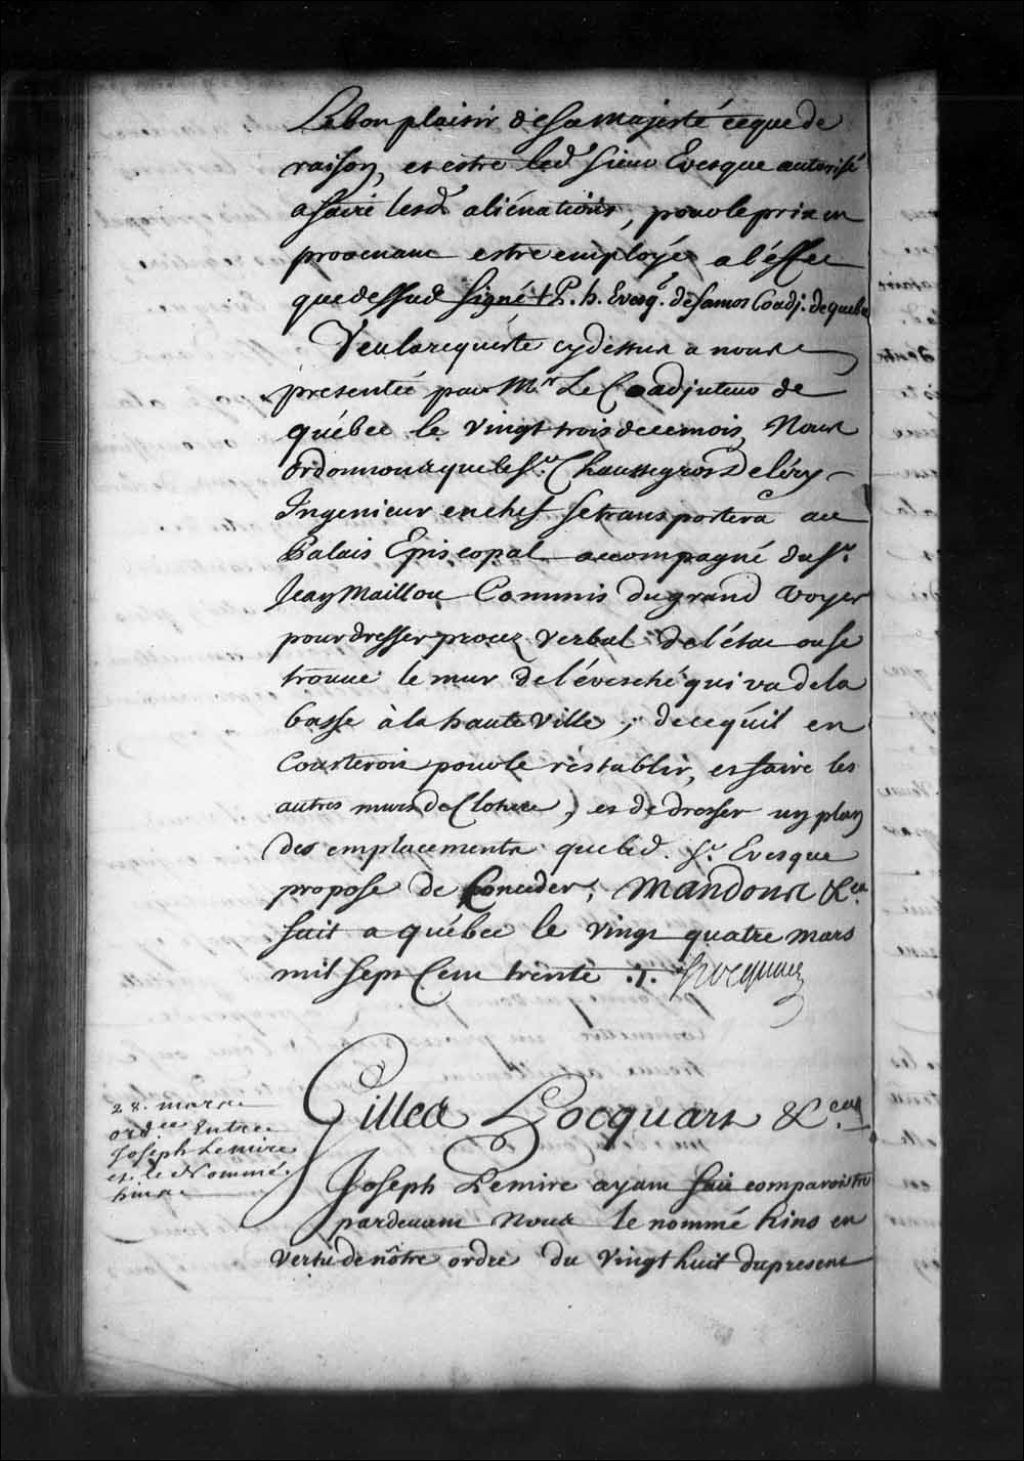 Le bon plaisir de sa majesté ceque de
raison, et estre led. sieur Evesque autorisé
a faire lesd. aliénations, pour le prix en
provenant estre employé a l'effet
que dessus signé † P. h. Evesq. de samos Coadj. de quebe
Veu la requeste cydessus a nous
presentée par Mr Le Coadjuteur de
québec le vingt trois de ce mois, Nous
ordonnons que le Sr. Chaussegros Deléry
Ingenieur en chef se transportera au
Palais Episcopal accompagné du Sr.
Jean Maillou Commis du grand voyer
pour dresser procez verbal de l'état ou se
trouve le mur de l'évesché qui va de la
basse à la haute ville, de ce qu'il en
Cousteroit pour le restablir, et faire les
autres murs de Cloture, et de dresser un plan
des emplacements que led. Sr. Evesque
propose de Conceder; Mandons &ca
fait a québec le vingt quatre mars
mil sept Cent trente ./. Hocquart
28. mars
ordce Entre
Joseph Lemire
et le Nommé
hins
Gilles Hocquart &ca
Joseph Lemire ayant fait comparoistre
pardevant Nous le nommé hins en
vertu de nôtre ordre du vingt huit du present